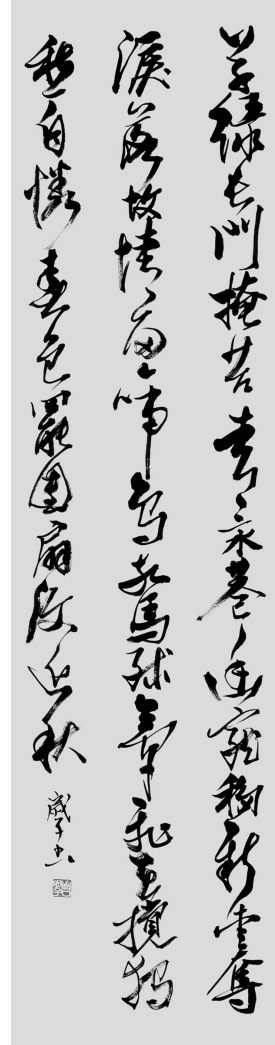 草綠長門掩苔青永巷幽寵移新愛奪
淚落故情留啼鳥驚殘夢飛花攪獨
愁自憐春色罷團扇復迎秋